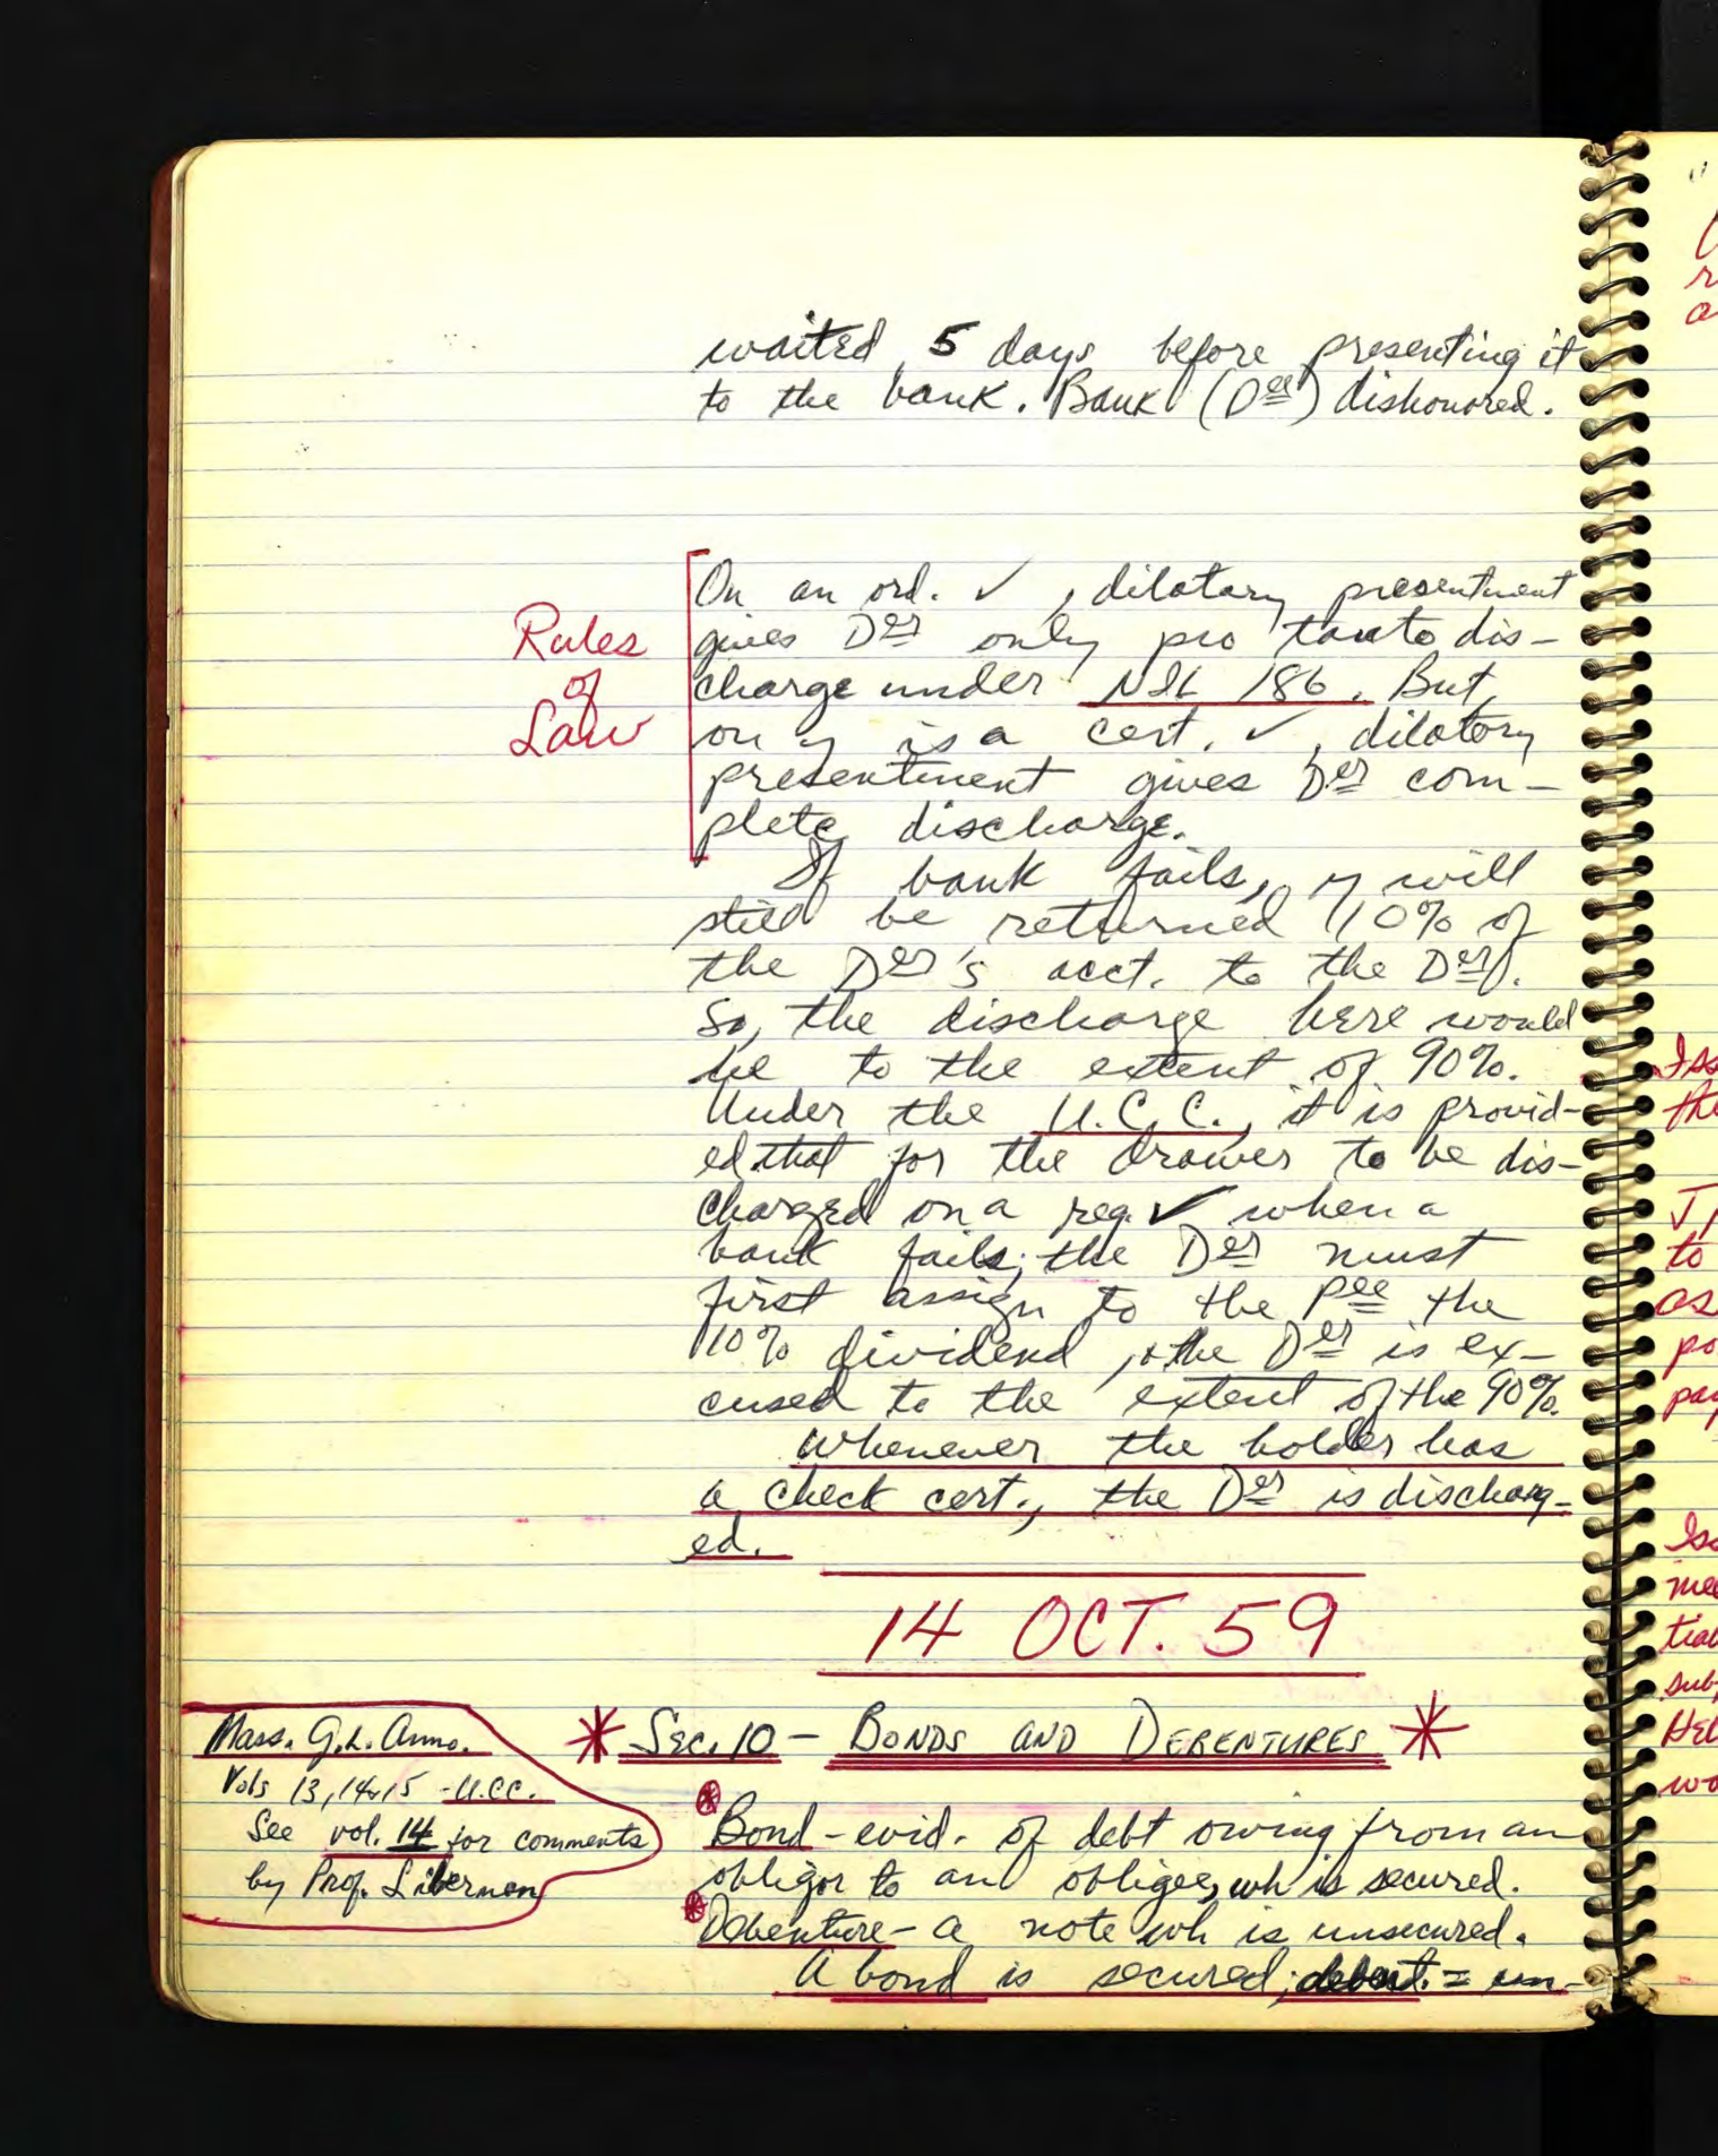 waited 5 days before presenting it
to the bank. Bank (Dee) dishonored.
Rules
of
Law
On an ord. ✓, dilatory presentment
gives Der only pro tanto dis-
charge under NIL 186. But,
on is a cert. ✓, dilatory
presentment gives Der com-
plete discharge.
If bank fails, will
still be returned 10% of
the Der's acct. to the Der.
So, the discharge here would
be to the extent of 90%.
Under the U.C.C., it is provid-
ed that for the drawer to be dis-
charged on a reg. ✓ when a
bank fails; the Der must
first assign to the Pee the
10% dividend, & the Der is ex-
cused to the extent of the 90%.
Whenever the holder has
a check cert., the Der is discharg-
ed.
14 OCT. 59
* SEC. 10 - BONDS AND DEBENTURES *
Mass. G.L. Anno.
Vols 13, 14 & 15 - U.C.C.
See vol. 14 for comments
by Prof. Liberman
* Bond - evid. of debt owing from an
obligor to an obligee, wh is secured.
* Debenture - a note wh is unsecured.
A bond is secured; debent. = un-
Iss
the
to
as
po
pay
Iss
mee
tial
sub
Hel
wo